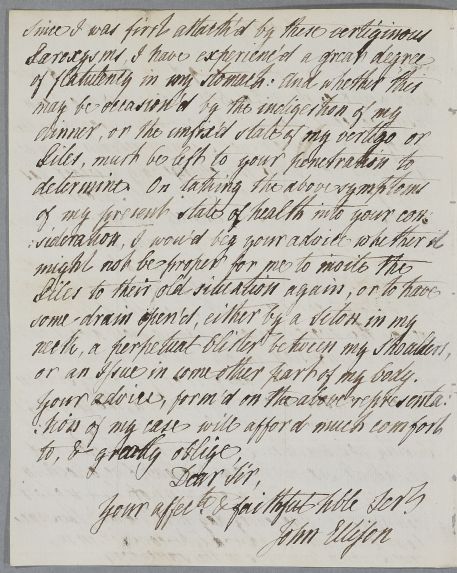 since I was first attack'd by these vertiginous
Paroxysms, I have experienc'd a great degree
of flatulency in my stomach: and whether this
may be occasion'd by the indigestion of my
dinner, or the unfix'd state of my vertigo or
Piles, must be left to your penetration to
determine. On taking the above symptoms
of my present state of health into your con:
:sideration, I wou'd beg your advice whether it
might not be proper for me to invite the
Piles to their old situation again, or to have
some drain open'd, either by a seton in my
neck, a perpetual blister between my shoulders,
or an Issue in some other part of my body.
Your advice, form'd on the above representa:
:tion of my case will afford much comfort
to, & greatly oblige,
Dear Sir,
Your affec.te & faithful hble Serv.t
John Ellison